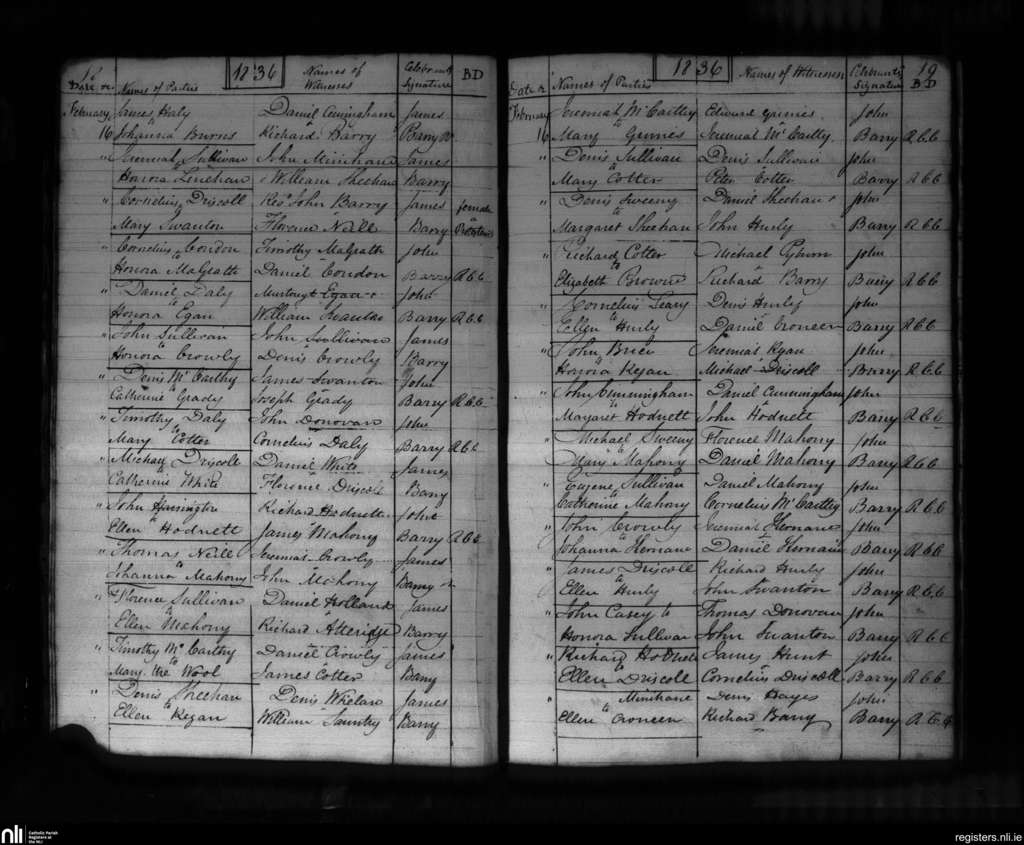 18 1836
Date &c Names of Parties Names of Witnesses Celebrants Signature B D
February James Hurly Daniel Cuningham James
16 Johanna Burns Richard Barry Barry
" Jeremiah Sullivan John Minihane James
Honora Linehan William Sheehan Barry
" Cornelius Driscoll Revd John Barry James female
Mary Swanton Florence Neill Barry
" Cornelius Condon Timothy Magrath John
Honora Magrath Daniel Condon Barry R.C.C
" Daniel Daly Murtough Egan John
to Honora Egan William Barry R.C.C
" John Sullivan John Sullivan James
to Honora Crowly Denis Crowly Barry
" Denis Mc Carthy James Swanton John
Catherine Grady Joseph Grady Barry R.C.C
" Timothy Daly John Donovan John
Mary Cotter Cornelius Daly Barry R.C.C
" Michael Driscoll Daniel White James
Catherine White Florence Driscoll Barry
" John Richard Hodnett John
Ellen Hodnett James Mahony Barry R.C.C
" Thomas Neill Jeremiah Crowly James
to Johanna Mahony John Mahony Barry
" Florence Sullivan Daniel Holland James
to Ellen Mahony Richard Atteridge Barry
" Timothy Mc Carthy Daniel Crowly James
to Mary the Wool James Cotter Barry
" Denis Sheehan Denis Whelan James
to Ellen Regan William Barry
1836 19
Date & Names of Parties Names of Witnesses Celebrants Signature B D
February Jeremiah Mc Carthy Edward Guines John
16 Mary Guines Jeremiah Mc Carthy Barry R.C.C
" Denis Sullivan Denis Sullivan John
to Mary Cotter Peter Cotter Barry R.C.C
" Denis Sweeny Daniel Sheehan John
to Margaret Sheehan John Hurly Barry R.C.C
" Richard Cotter Michael John
to Elizabeth Brown Richard Barry Barry R.C.C
" Cornelius Leary Denis Hurly John
to Ellen Hurly Daniel Croneen Barry R.C.C
" John Brien Jeremiah Ryan John
Honora Regan Michael Driscoll Barry R.C.C
" John Cunningham Daniel Cunningham John
to Margaret Hodnett John Hodnett Barry R.C.C
" Michael Sweeny Florence Mahony John
to Mary Mahony Daniel Mahony Barry R.C.C
" Eugene Sullivan Daniel Mahony John
Catherine Mahony Cornelius Mc Carthy Barry R.C.C
" John Crowly Jeremiah Hernane John
to Johanna Hernane Daniel Hernane Barry R.C.C
" James Driscoll Richard Hurly John
to Ellen Hurly John Swanton Barry R.C.C
" John Casey to Thomas Donovan John
Honora Sullivan John Swanton Barry R.C.C
" Richard Hodnett James Hunt John
to Ellen Driscoll Cornelius Driscoll Barry R.C.C
" Minihane Denis Hayes John
to Ellen Croneen Richard Barry Barry R.C.C
nli Catholic Parish Registers at the NLI
registers.nli.ie